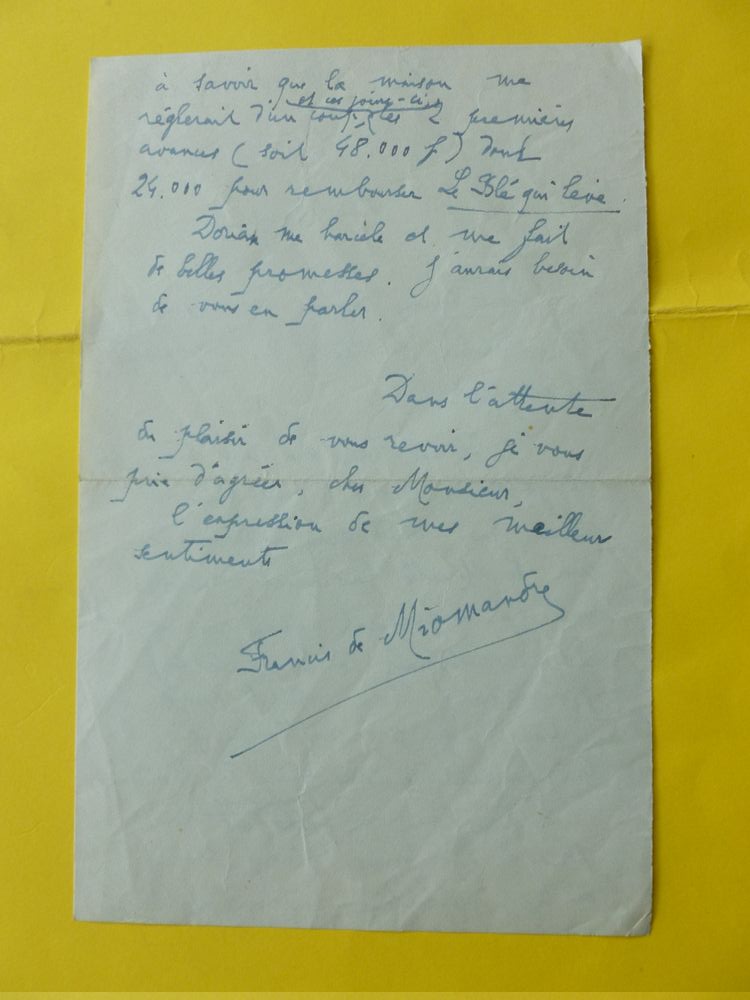 à savoir que la maison me
et ces jours-ci
réglerait d'un coup, les 2 premières
avances (soit 48.000 f) dont
24.000 pour rembourser Le Blé qui lève.
Dorian me harcèle et me fait
de belles promesses. J'aurais besoin
de vous en parler.
Dans l'attente
du plaisir de vous revoir, je vous
prie d'agréer, cher Monsieur,
l'expression de mes meilleurs
sentiments
Francis de Miomandre